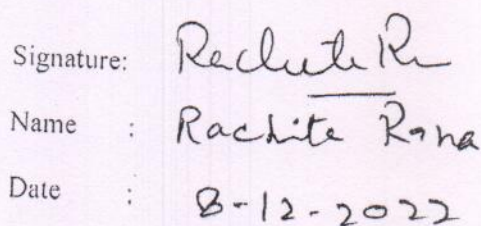 Signature: Rachite Rn
Name : Rachite Rana
Date : 8-12-2022